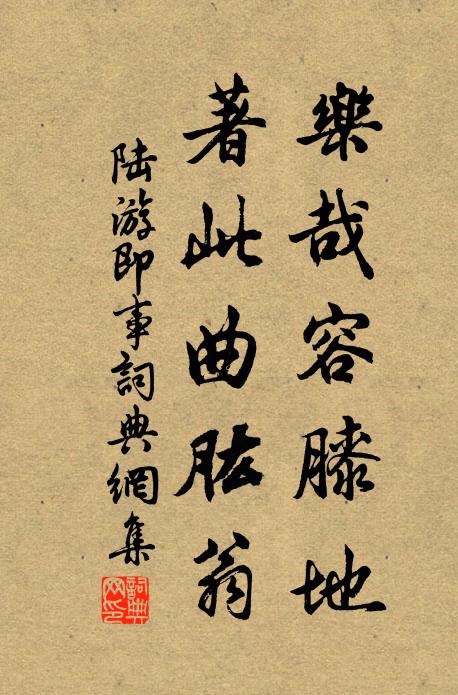 樂哉容膝地
著此曲肱翁
陸游即事詞典網集
詞典网印